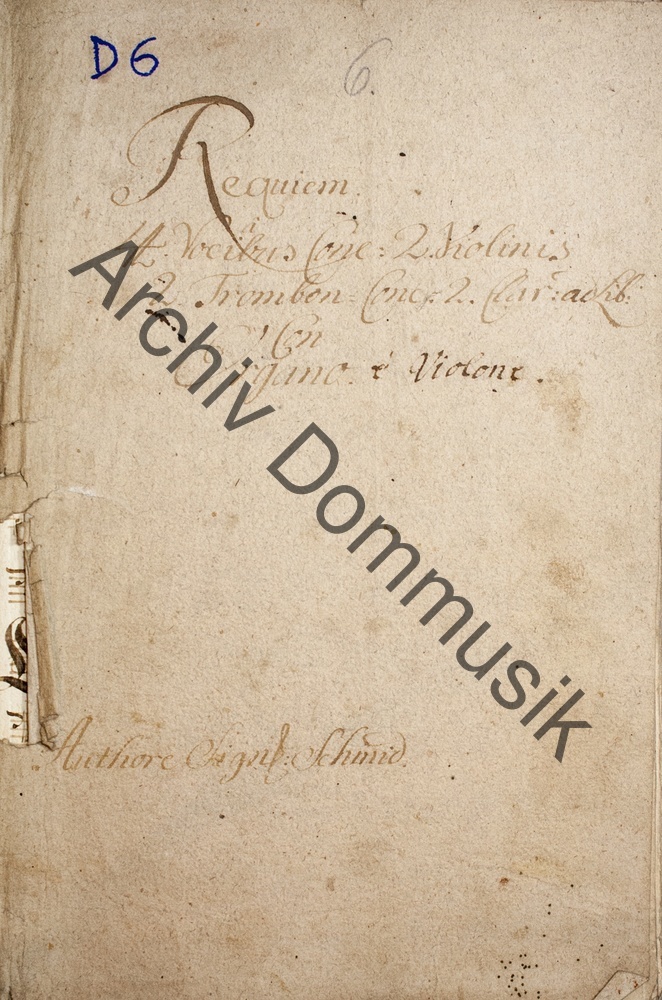 D 6
6.
Requiem.
4 Vocibus Conc: 2 Violinis
2. Trombon: Conc: 2. Clar: ad lib:
Con
Organo. è Violone.
Authore Sign: Schmid.
Archiv Dommusik